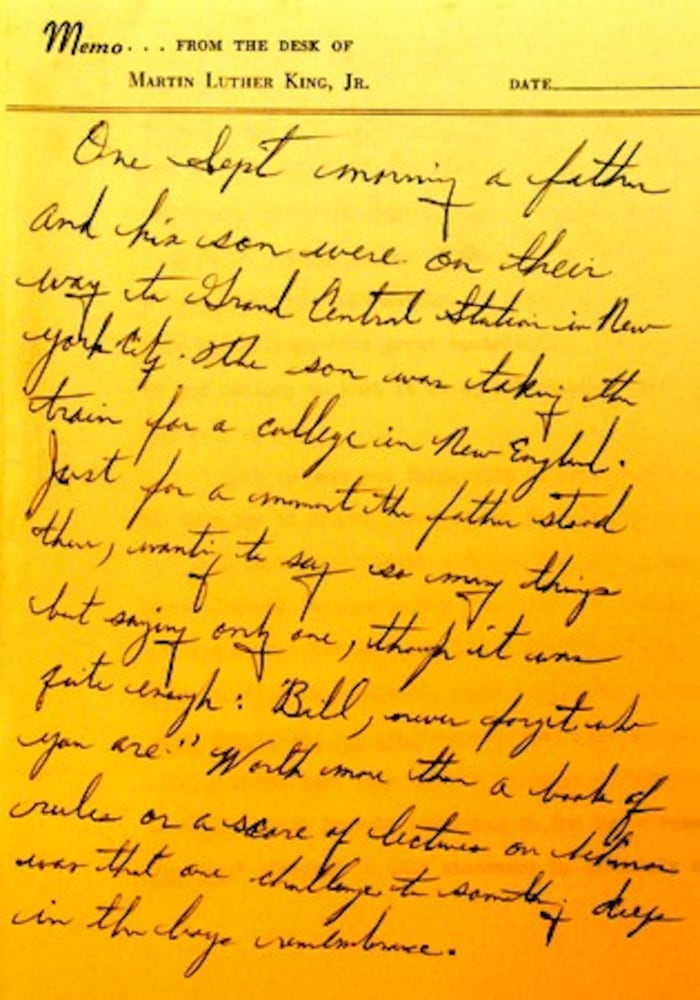 Memo... FROM THE DESK OF
MARTIN LUTHER KING, JR. DATE
One Sept morning a father
and his son were on their
way to Grand Central Station in New
York City. The son was taking the
train for a college in New England.
Just for a moment the father stood
there, wanting to say so many things
but saying only one, though it was
quite enough: "Bill, never forget who
you are." Worth more than a book of
rules or a score of lectures on behavior
was that one challenge to something deep
in the boys remembrance.